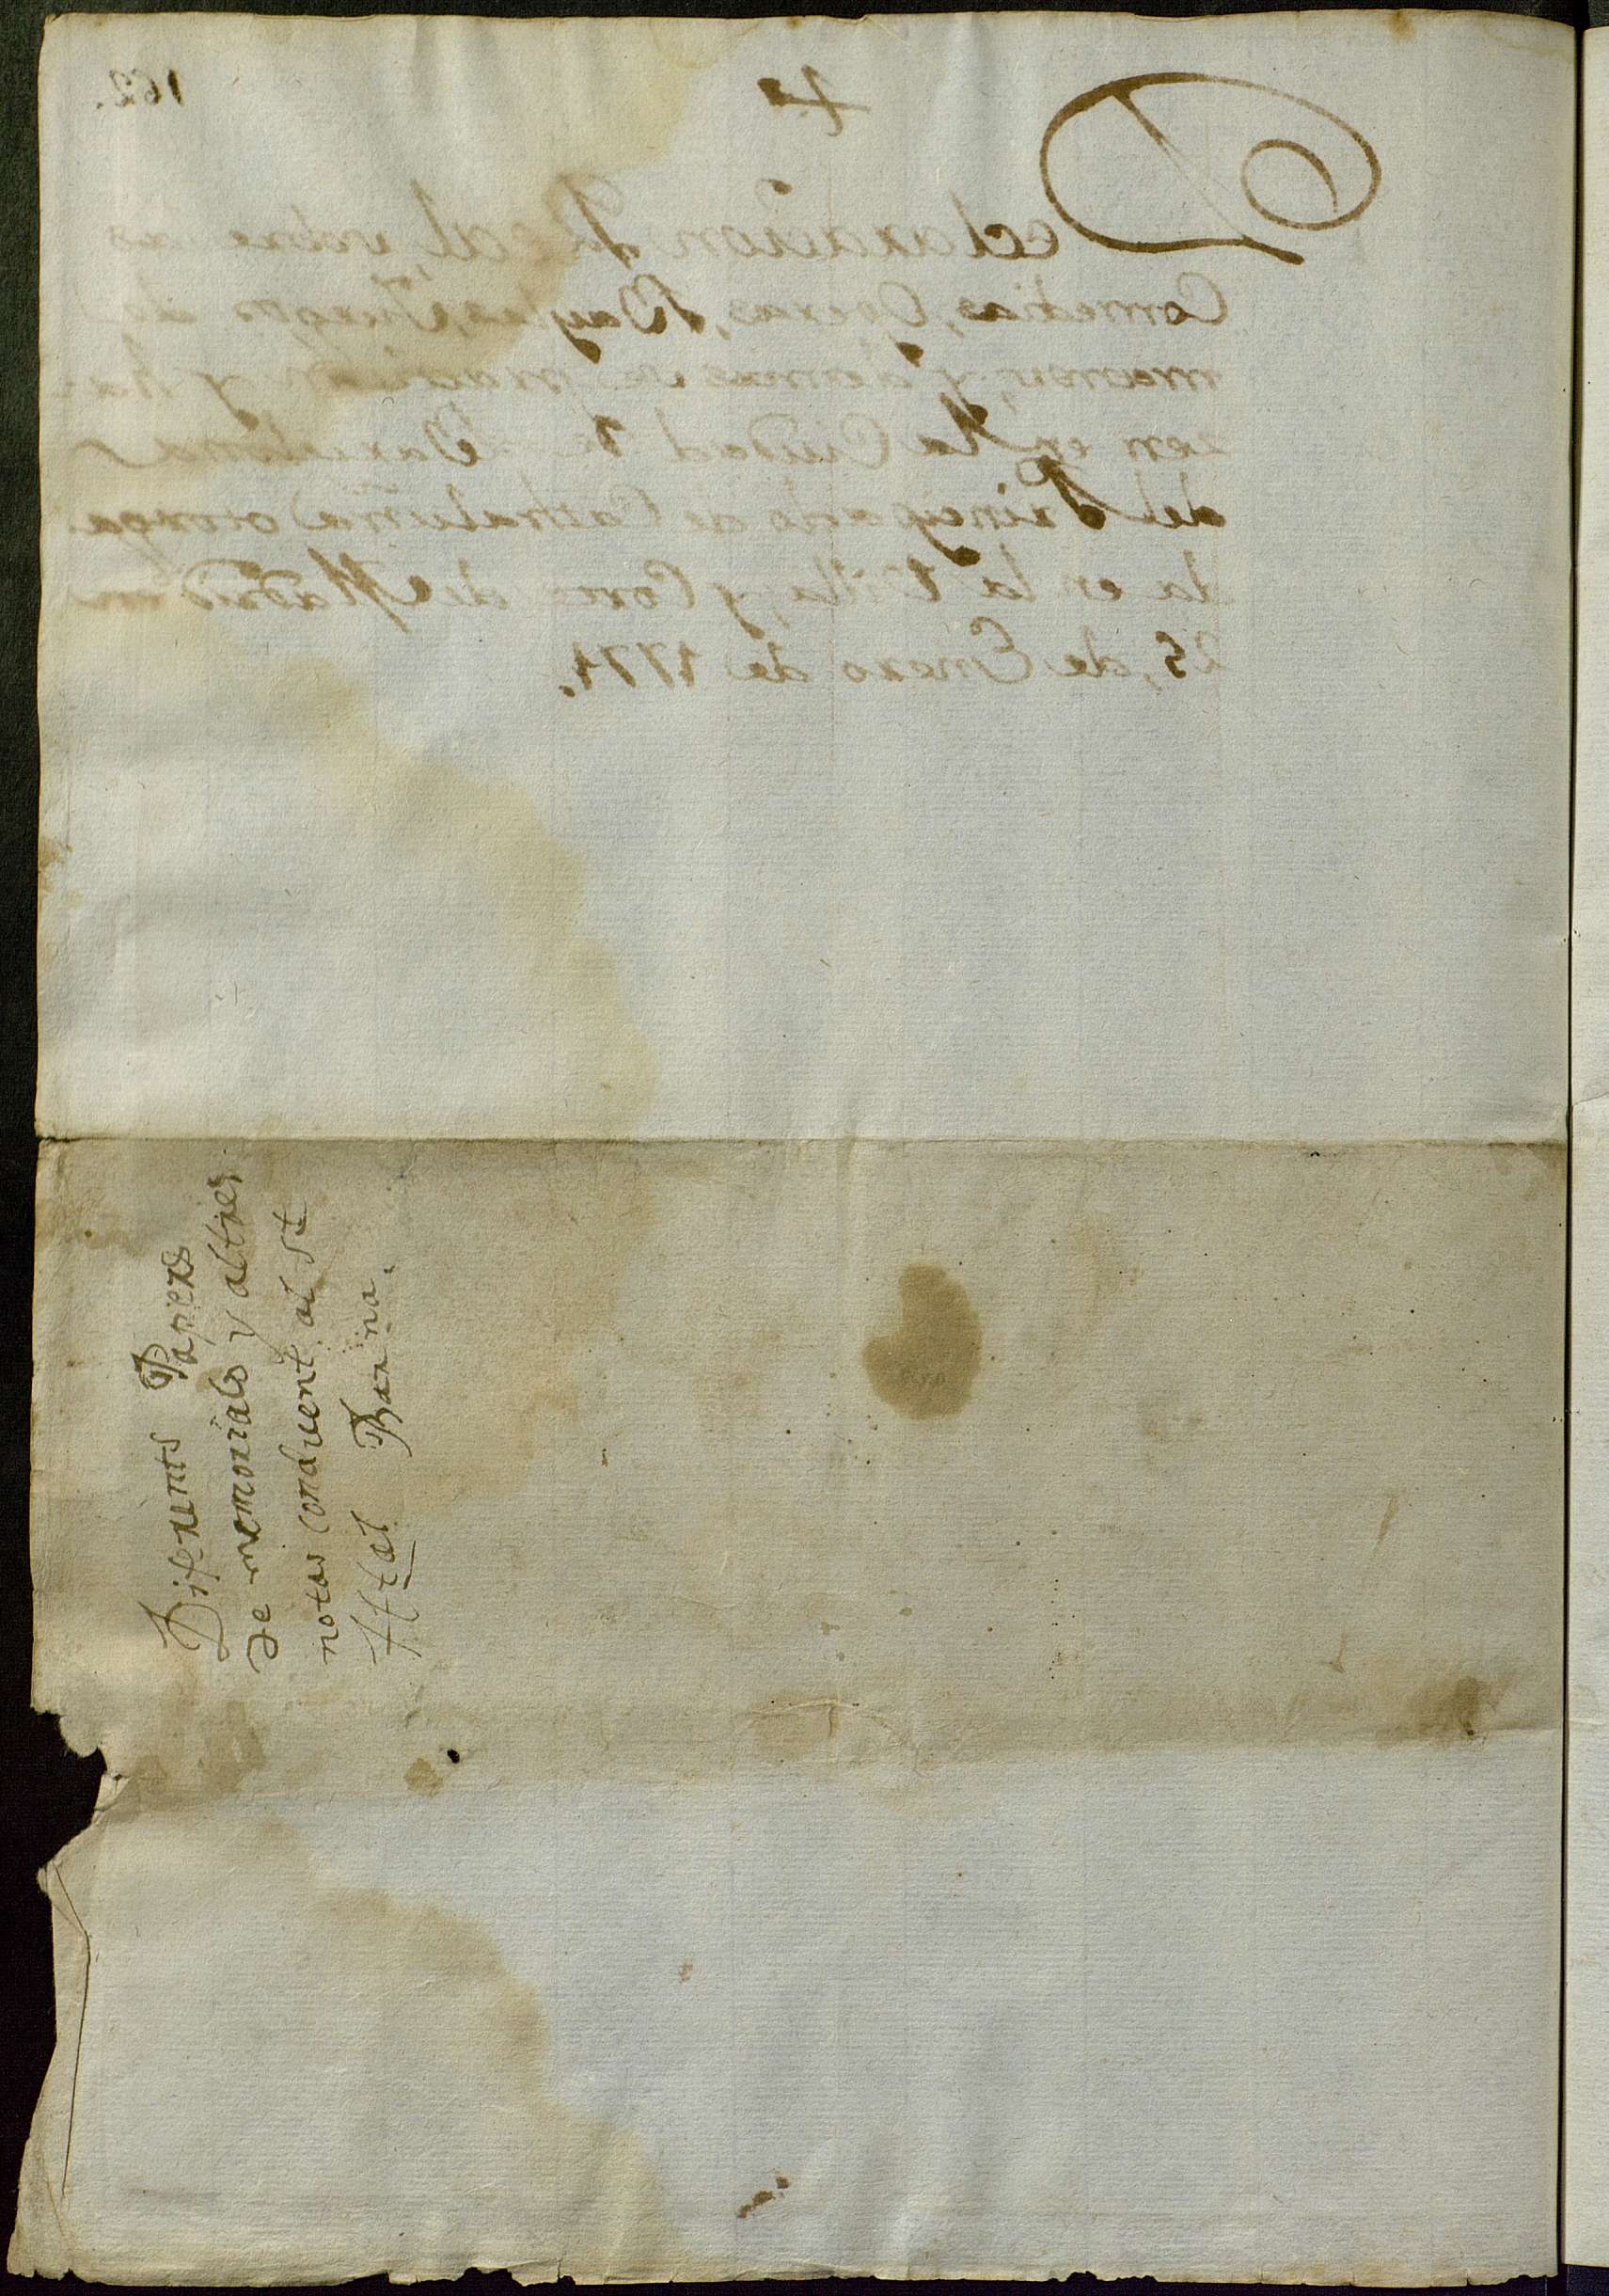 162.
Declaracion Real sobre las
Comedias, Operas, Bayles, Juegos de
manos, y demas se practican y ha
zen en la Ciudad de Barcelona
del Principado de Cathaluña) otorga
da en la Villa, y Corte de Madrid en
25, de Enero de 1771.
Diferents Papers
de memorials y altres
notas conduent al St
Hptal Barna.